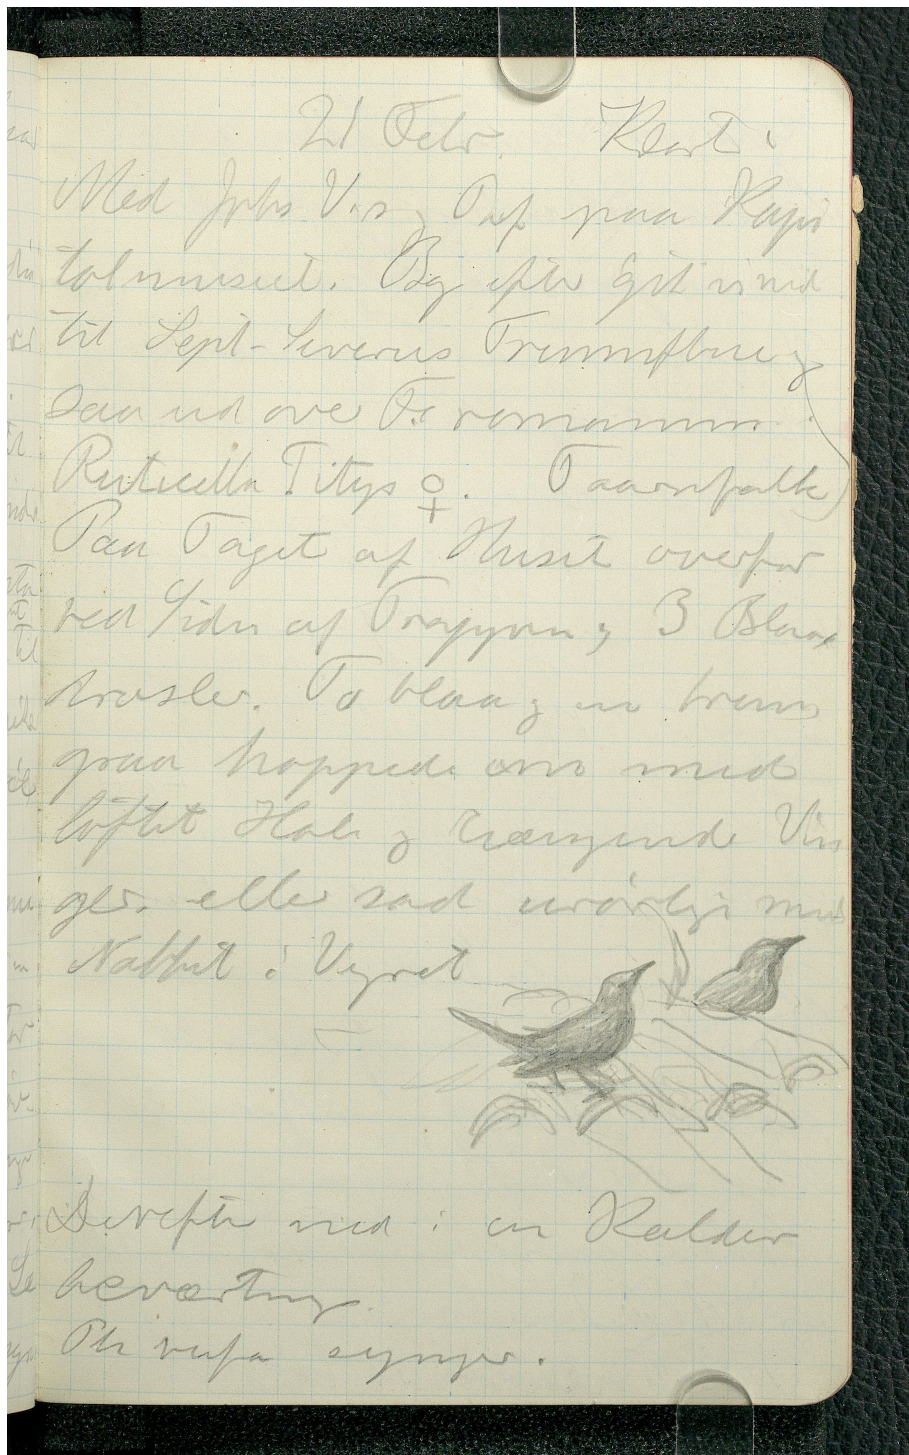 21 Febr. Klart.
Med Johs V. og Puf paa Kapi
tolmuseet. Bag efter gik vi ned
til Sept-Severus Triumfbue og
saa ud over Fo romanum.
Ruticilla Titys ♀. Taarnfalk)
Paa Taget af Huset overfor
ved Siden af Trappen, 3 Blaa
drosler. To blaa og en brun
graa hoppede om med
löftet Hale og hængende Vin
ger. eller sad urörlige med
Næbbet i Vejret
Derefter ned i en Kælder
beværtning.
Ph rufa synger.